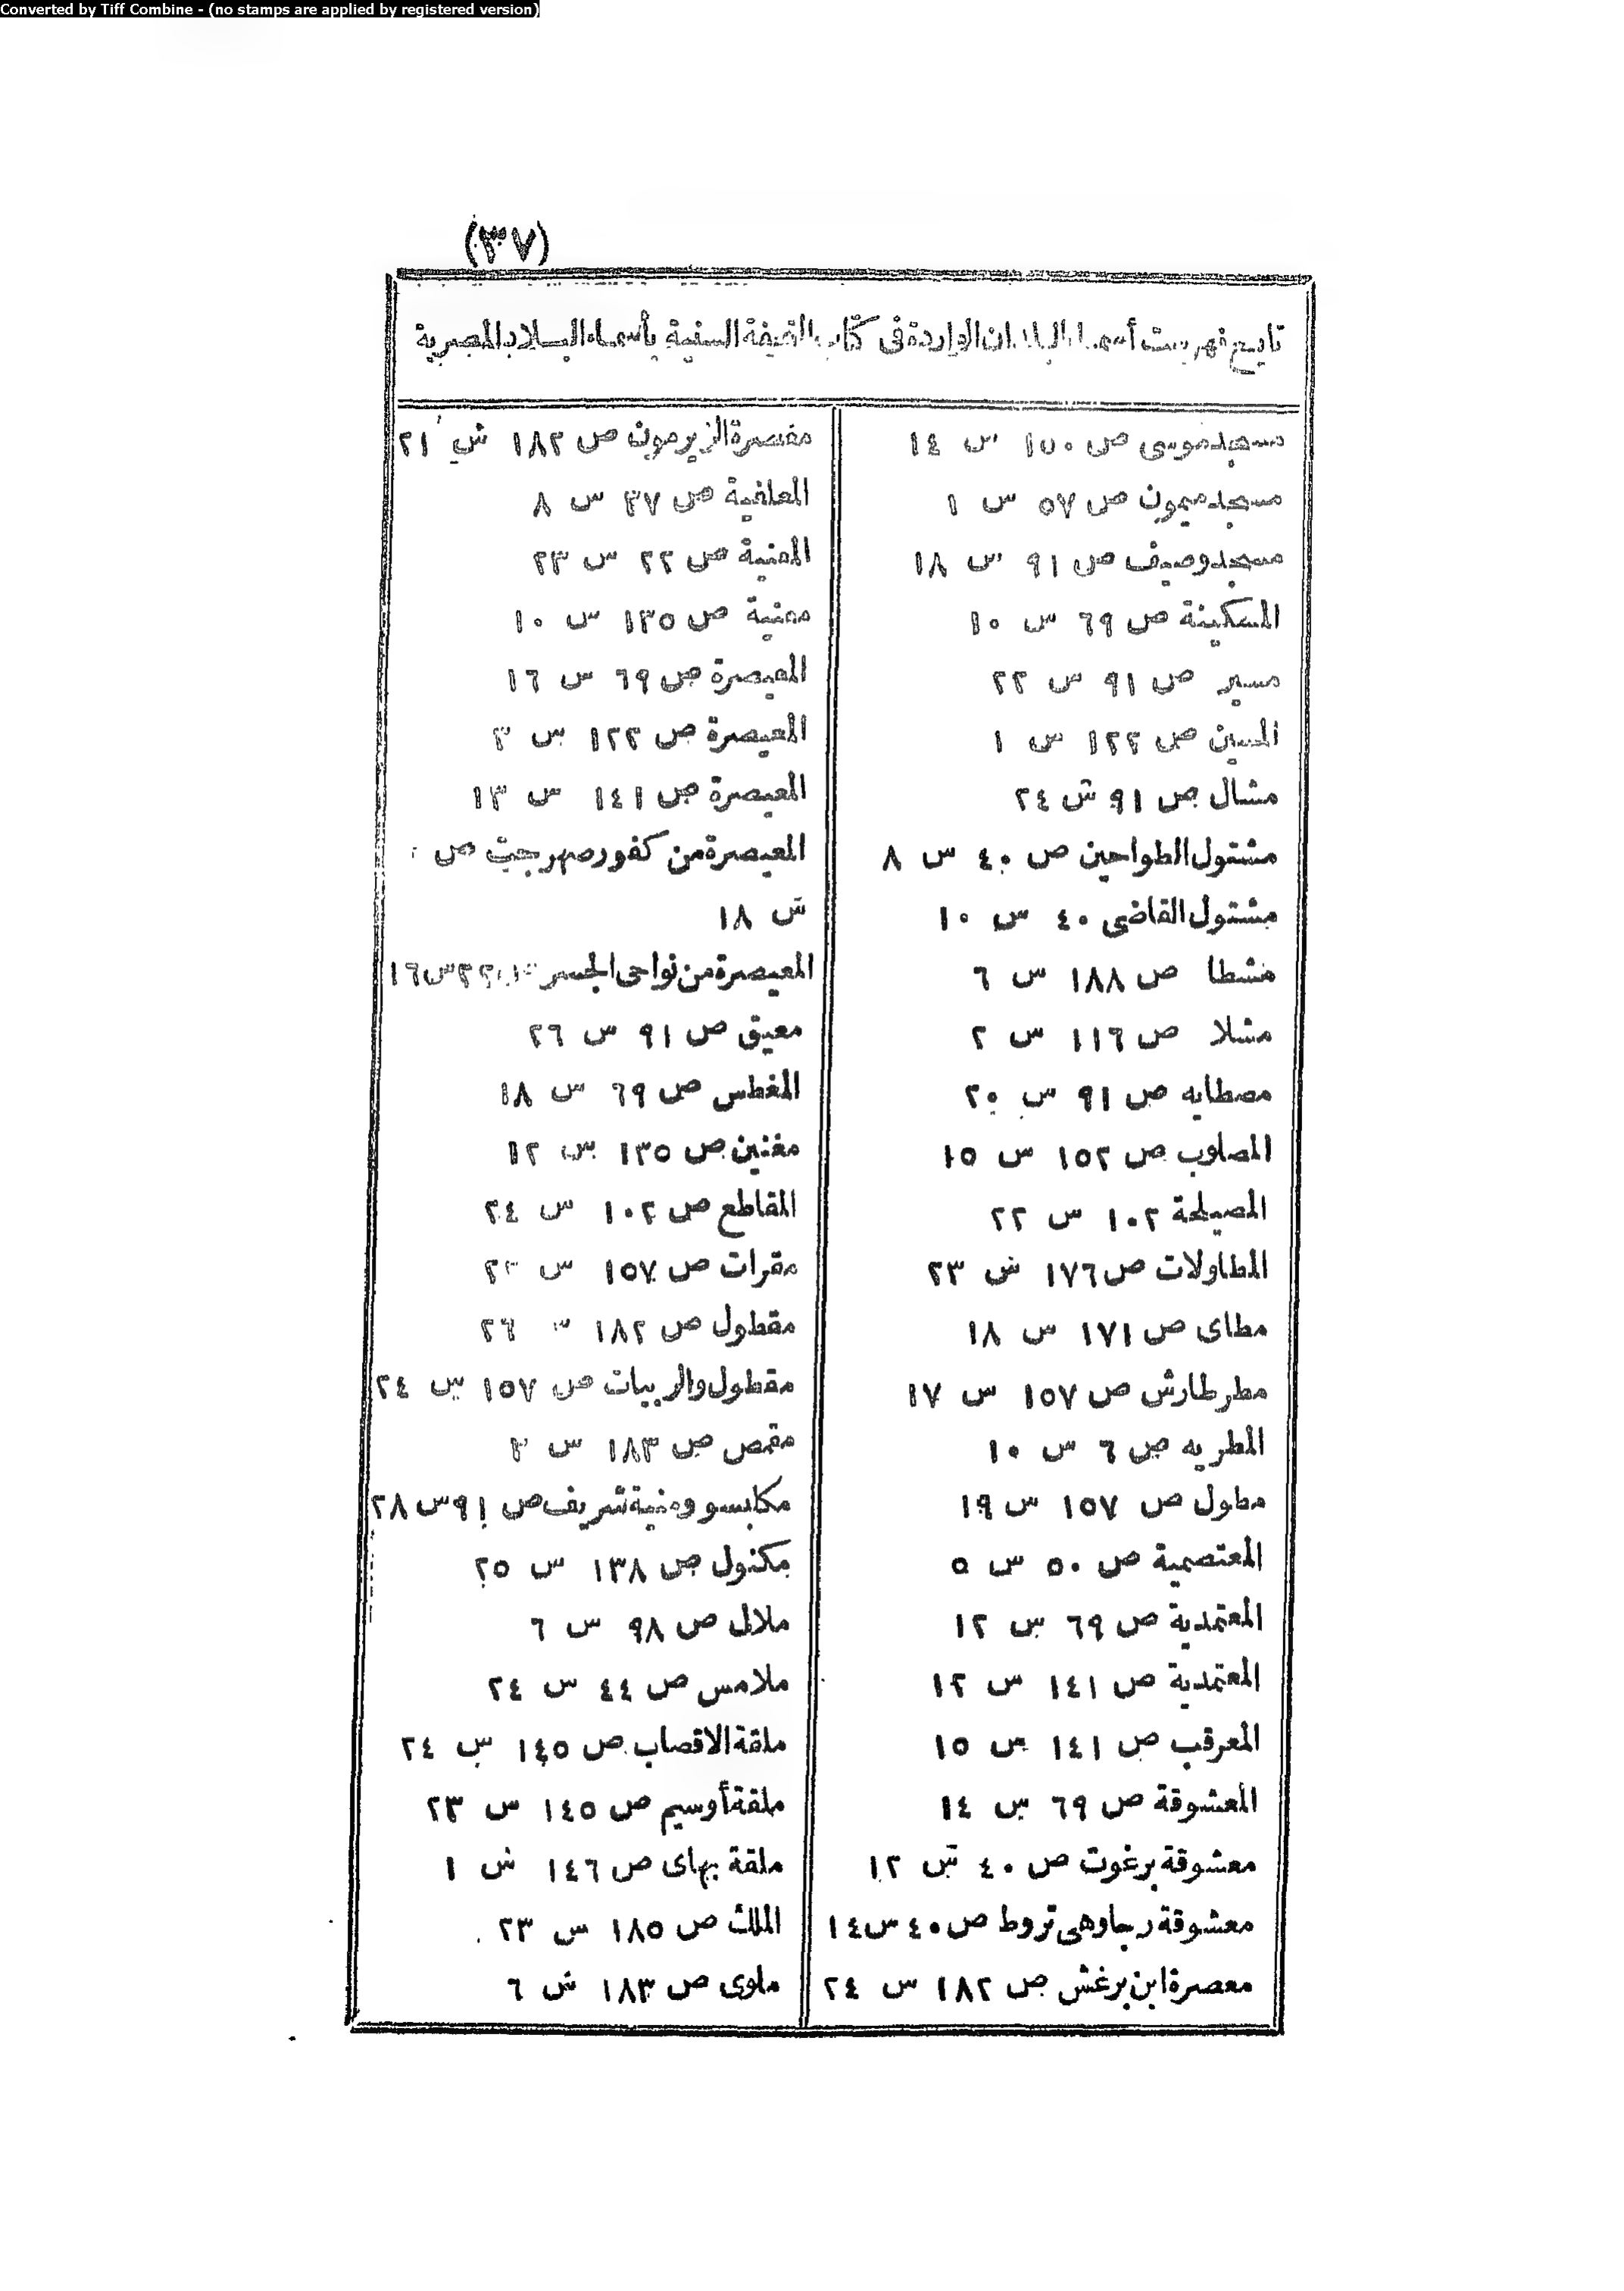 Converted by Tiff Combine - (no stamps are applied by registered version)
(٣٧)
تابع فهرست أسماء البلدان الواردة فى كتاب التحفة السنية بأسماء البلاد المصرية
مسجد موسى ص ١٥٠ س ١٤
مسجد ميمون ص ٥٧ س ١
مسجد وصيف ص ٩١ س ١٨
المسكينة ص ٦٩ س ١٠
مسير ص ٩١ س ٢٢
المسين ص ١٢٢ س ١
مشال ص ٩١ س ٢٤
مشتول الطواحين ص ٤٠ س ٨
مشتول القاضى ٤٠ س ١٠
مشطا ص ١٨٨ س ٦
مشلا ص ١١٦ س ٢
مصطايه ص ٩١ س ٢٠
المصلوب ص ١٥٢ س ١٥
المصيلحة ١٠٢ س ٢٢
المطاولات ص ١٧٦ س ٢٣
مطاى ص ١٧١ س ١٨
مطرطارش ص ١٥٧ س ١٧
المطريه ص ٦ س ١٠
مطول ص ١٥٧ س ١٩
المعتصمية ص ٥٠ س ٥
المعتمدية ص ٦٩ س ١٢
المعتمدية ص ١٤١ س ١٢
المعرقب ص ١٤١ س ١٥
المعشوقة ص ٦٩ س ١٤
معشوقة برغوت ص ٤٠ س ١٢
معشوقة رجا وهى تروط ص ٤٠ س ١٤
معصرة ابن برغش ص ١٨٢ س ٢٤
معصرة الزيرمون ص ١٨٢ س ٢١
المعلفية ص ٣٧ س ٨
المعنية ص ٢٢ س ٢٣
معنية ص ١٣٥ س ١٠
المعيصرة ص ٦٩ س ١٦
المعيصرة ص ١٢٢ س ٣
المعيصرة ص ١٤١ س ١٣
المعيصرة من كفور صهرجت ص
س ١٨
المعيصرة من نواحى الجسر س ١٦
معيق ص ٩١ س ٢٦
المغطس ص ٦٩ س ١٨
مغنين ص ١٣٥ س ١٢
المقاطع ص ١٠٢ س ٢٤
مقرات ص ١٥٧ س
مقطول ص ١٨٢ س ٢٦
مقطول والربيات ص ١٥٧ س ٢٤
مقمص ص ١٨٣ س
مكابسو ومنية شريف ص ٩١ س ٢٨
مكنول ص ١٣٨ س ٢٥
ملال ص ٩٨ س ٦
ملامس ص ٤٤ س ٢٤
ملقة الاقصاب ص ١٤٥ س ٢٤
ملقة أوسيم ص ١٤٥ س ٢٣
ملقة بهاى ص ١٤٦ س ١
الملك ص ١٨٥ س ٢٣
ملوى ص ١٨٣ س ٦